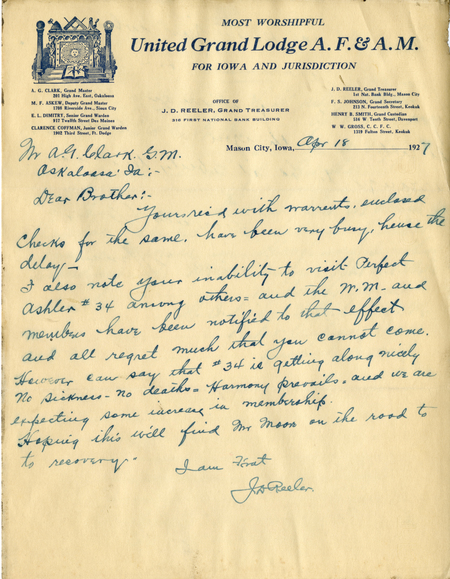 MOST WORSHIPFUL
United Grand Lodge A. F. & A. M.
FOR IOWA AND JURISDICTION
A. G. CLARK, Grand Master
201 High Ave, East, Oskaloosa
M. F. ASKEW, Deputy Grand Master
1708 Riverside Ave., Sioux City
E. L. DIMITRY, Senior Grand Warden
977 Twelfth Street Des Moines
CLARENCE COFFMAN, Junior Grand Warden
1903 Third Street, Ft. Dodge
OFFICE OF
J. D. REELER, GRAND TREASURER
210 FIRST NATIONAL BANK BUILDING
J. D. REELER, Grand Treasurer
1st Nat. Bank Bldg., Mason City
F. S. JOHNSON, Grand Secretary
213 N. Fourteenth Street, Keokuk
HENRY B. SMITH, Grand Custodian
514 W. Tenth Street, Davenport
W. W. GROSS, C. C. F. C.
1319 Fulton Street, Keokuk
Mason City, Iowa, Apr 18 1927
Mr A. G. Clark. G. M.
Oskaloosa Ia:-
Dear Brother:-
Yours rec'd with warrents, enclosed
Checks for the same, have been very busy, hense the
delay-
I also note your inability to visit Perfect
Ashler #34 among others = and the W. M. and
members have been notified to that effect
and all regret much that you cannot come.
However can say that #34 is getting along nicely
No sickness - no deaths = Harmony prevails. and we are
expecting some increase in membership.
Hoping this will find Mr Moon on the road to
to recovery.
I am Frat
J D Reeler